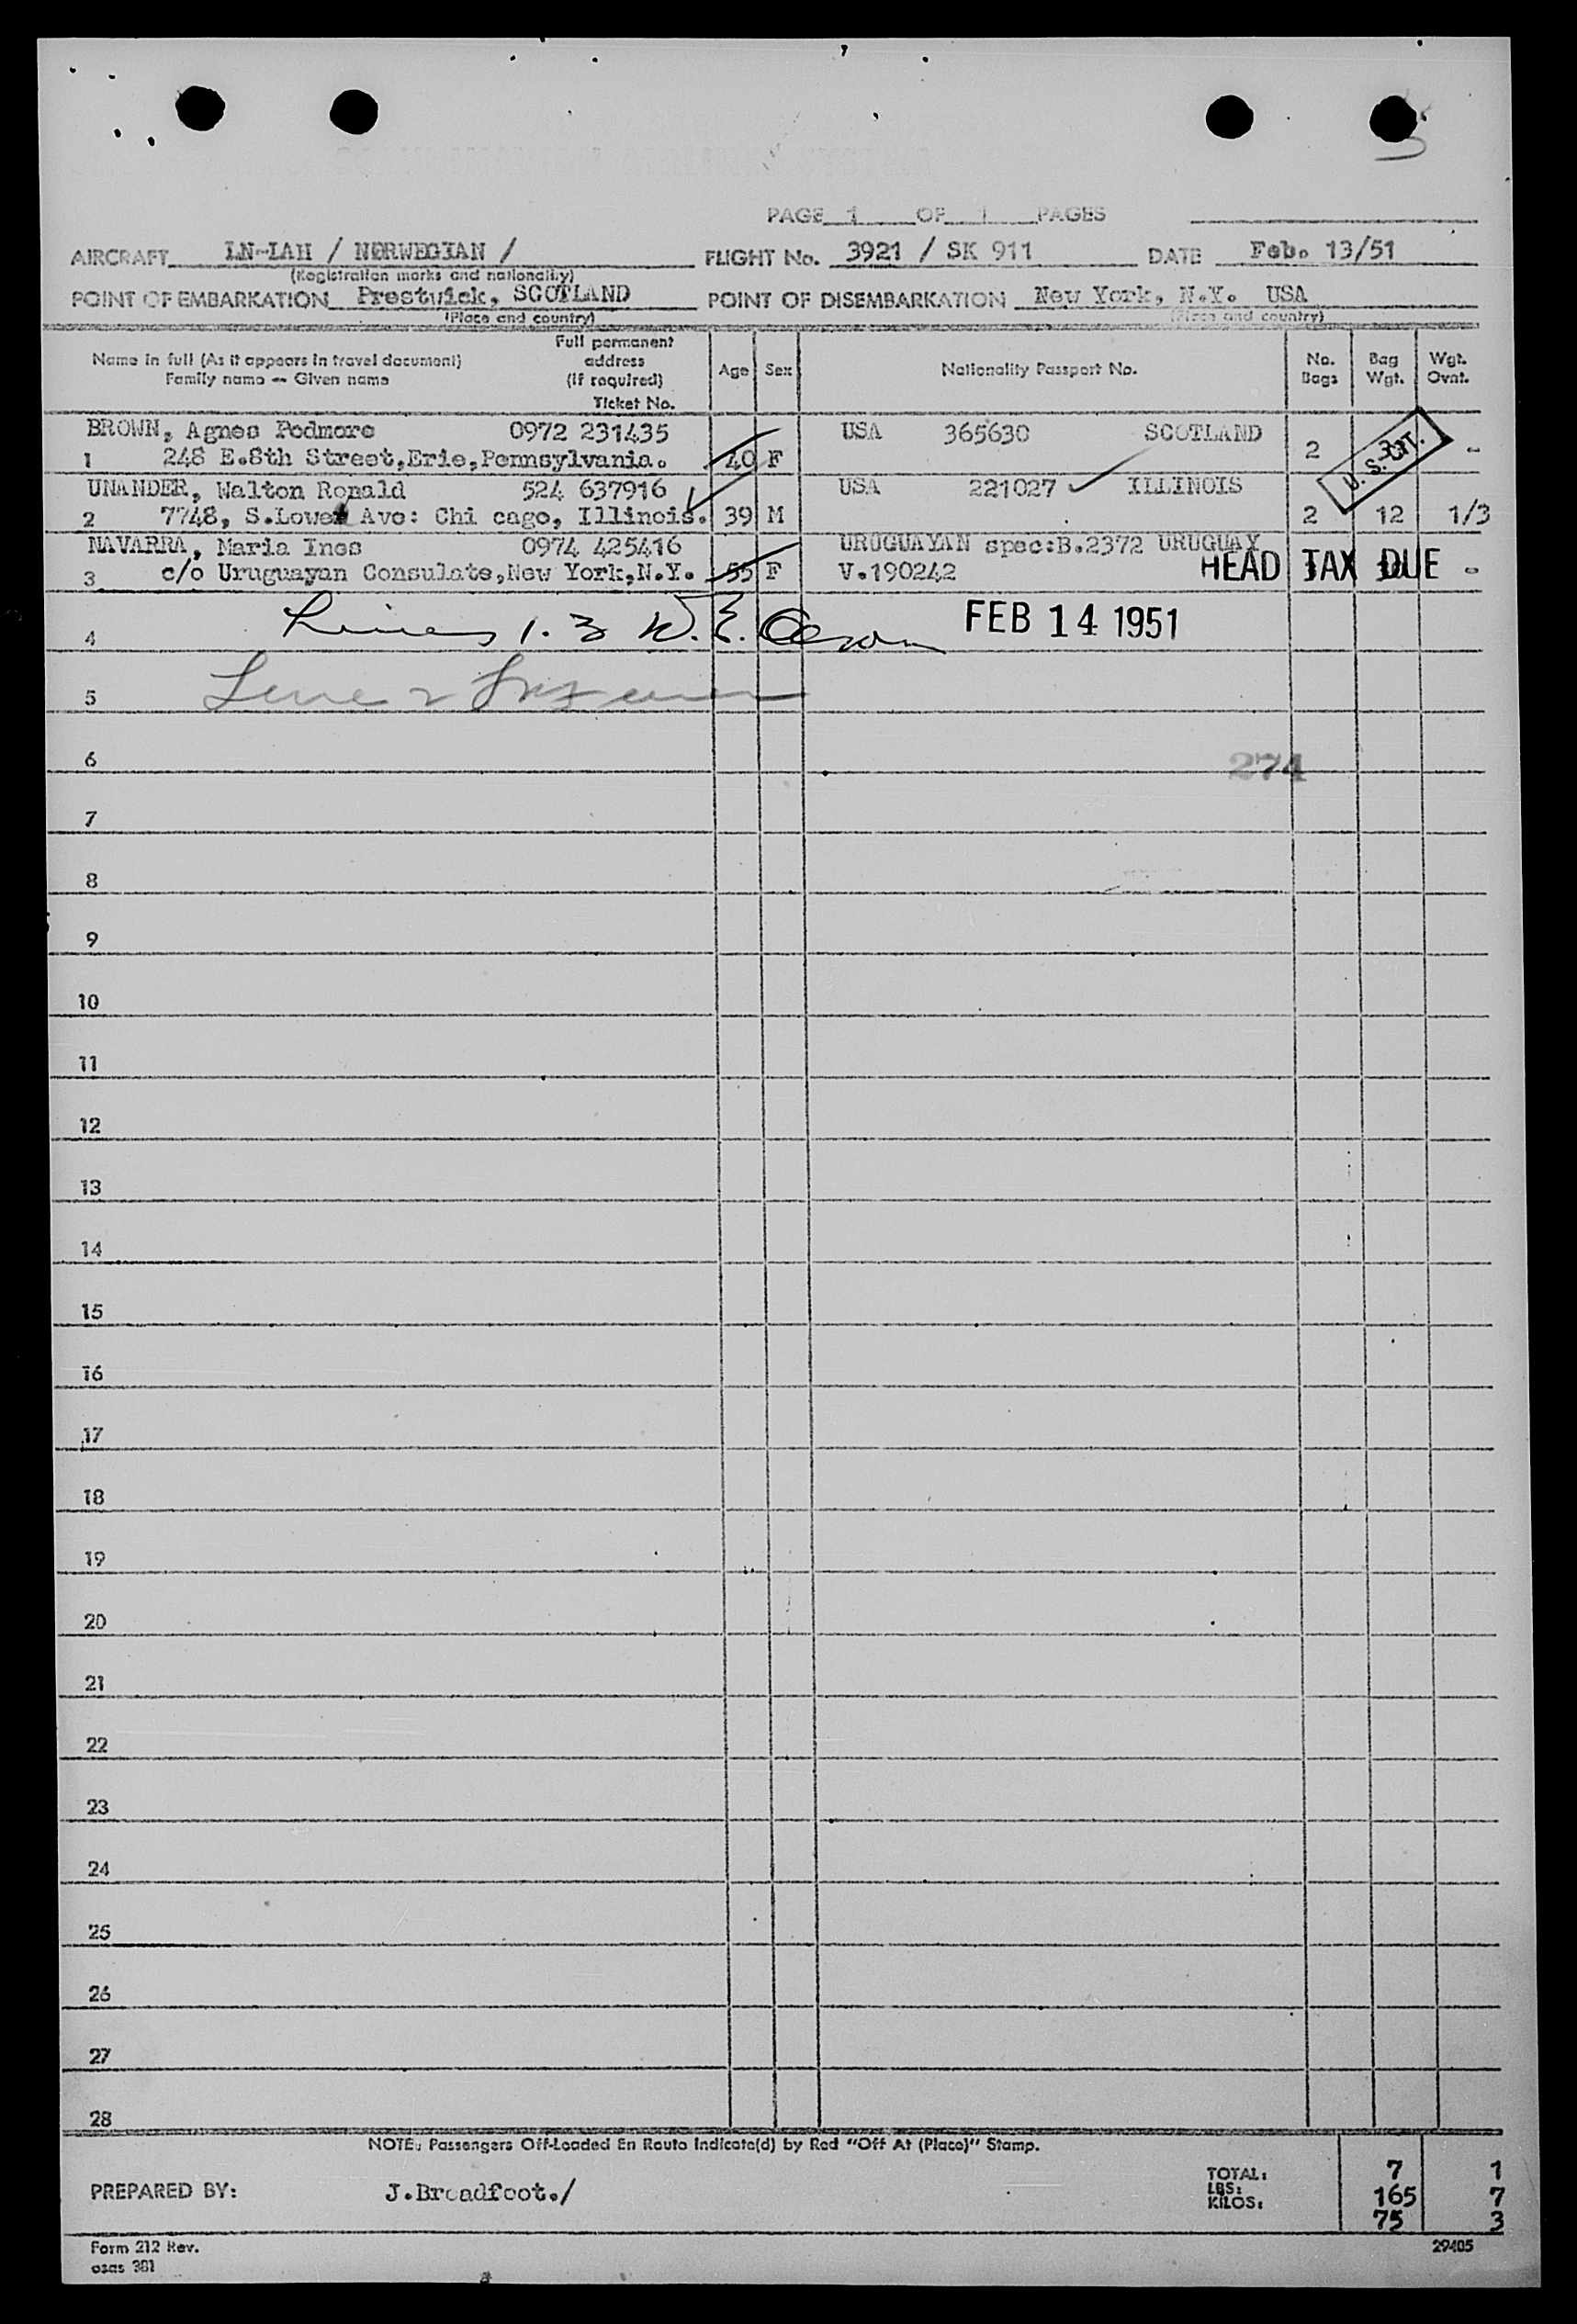 PAGE 1 OF 1 PAGES
AIRCRAFT LN-LAH / NØRWEGIAN / FLIGHT No. 3921 / SK 911 DATE Feb. 13/51
(Registration marks and nationality)
POINT OF EMBARKATION Prestwick, SCOTLAND POINT OF DISEMBARKATION New York, N.Y. USA
(Place and country) (Place and country)
Name in full (As it appears in travel document)
Family name -- Given name
Full permanent
address
(if required)
Ticket No.
Age Sex Nationality Passport No. No. Bags Bag Wgt. Wgt. Ovnt.
BROWN, Agnes Podmore 0972 231435 USA 365630 SCOTLAND
1 248 E.8th Street,Erie,Pennsylvania. 40 F 2 -
U.S. CIT.
UNANDER, Walton Ronald 524 637916 USA 221027 ILLINOIS
2 7748, S.Lowe Ave: Chi cago, Illinois. 39 M 2 12 1/3
NAVARRA, Maria Ines 0974 425416 URUGUAYAN spec:B.2372 URUGUAY
3 c/o Uruguayan Consulate,New York,N.Y. 55 F V.190242 -
HEAD TAX DUE
4 Lines 1. 3 W. E. FEB 14 1951
5 Line 2
6
274
7
8
9
10
11
12
13
14
15
16
17
18
19
20
21
22
23
24
25
26
27
28
NOTE: Passengers Off-Loaded En Route Indicate(d) by Red "Off At (Place)" Stamp.
PREPARED BY: J.Broadfoot./
TOTAL: 7 1
LBS: 165 7
KILOS: 75 3
Form 212 Rev.
osas 381
29405